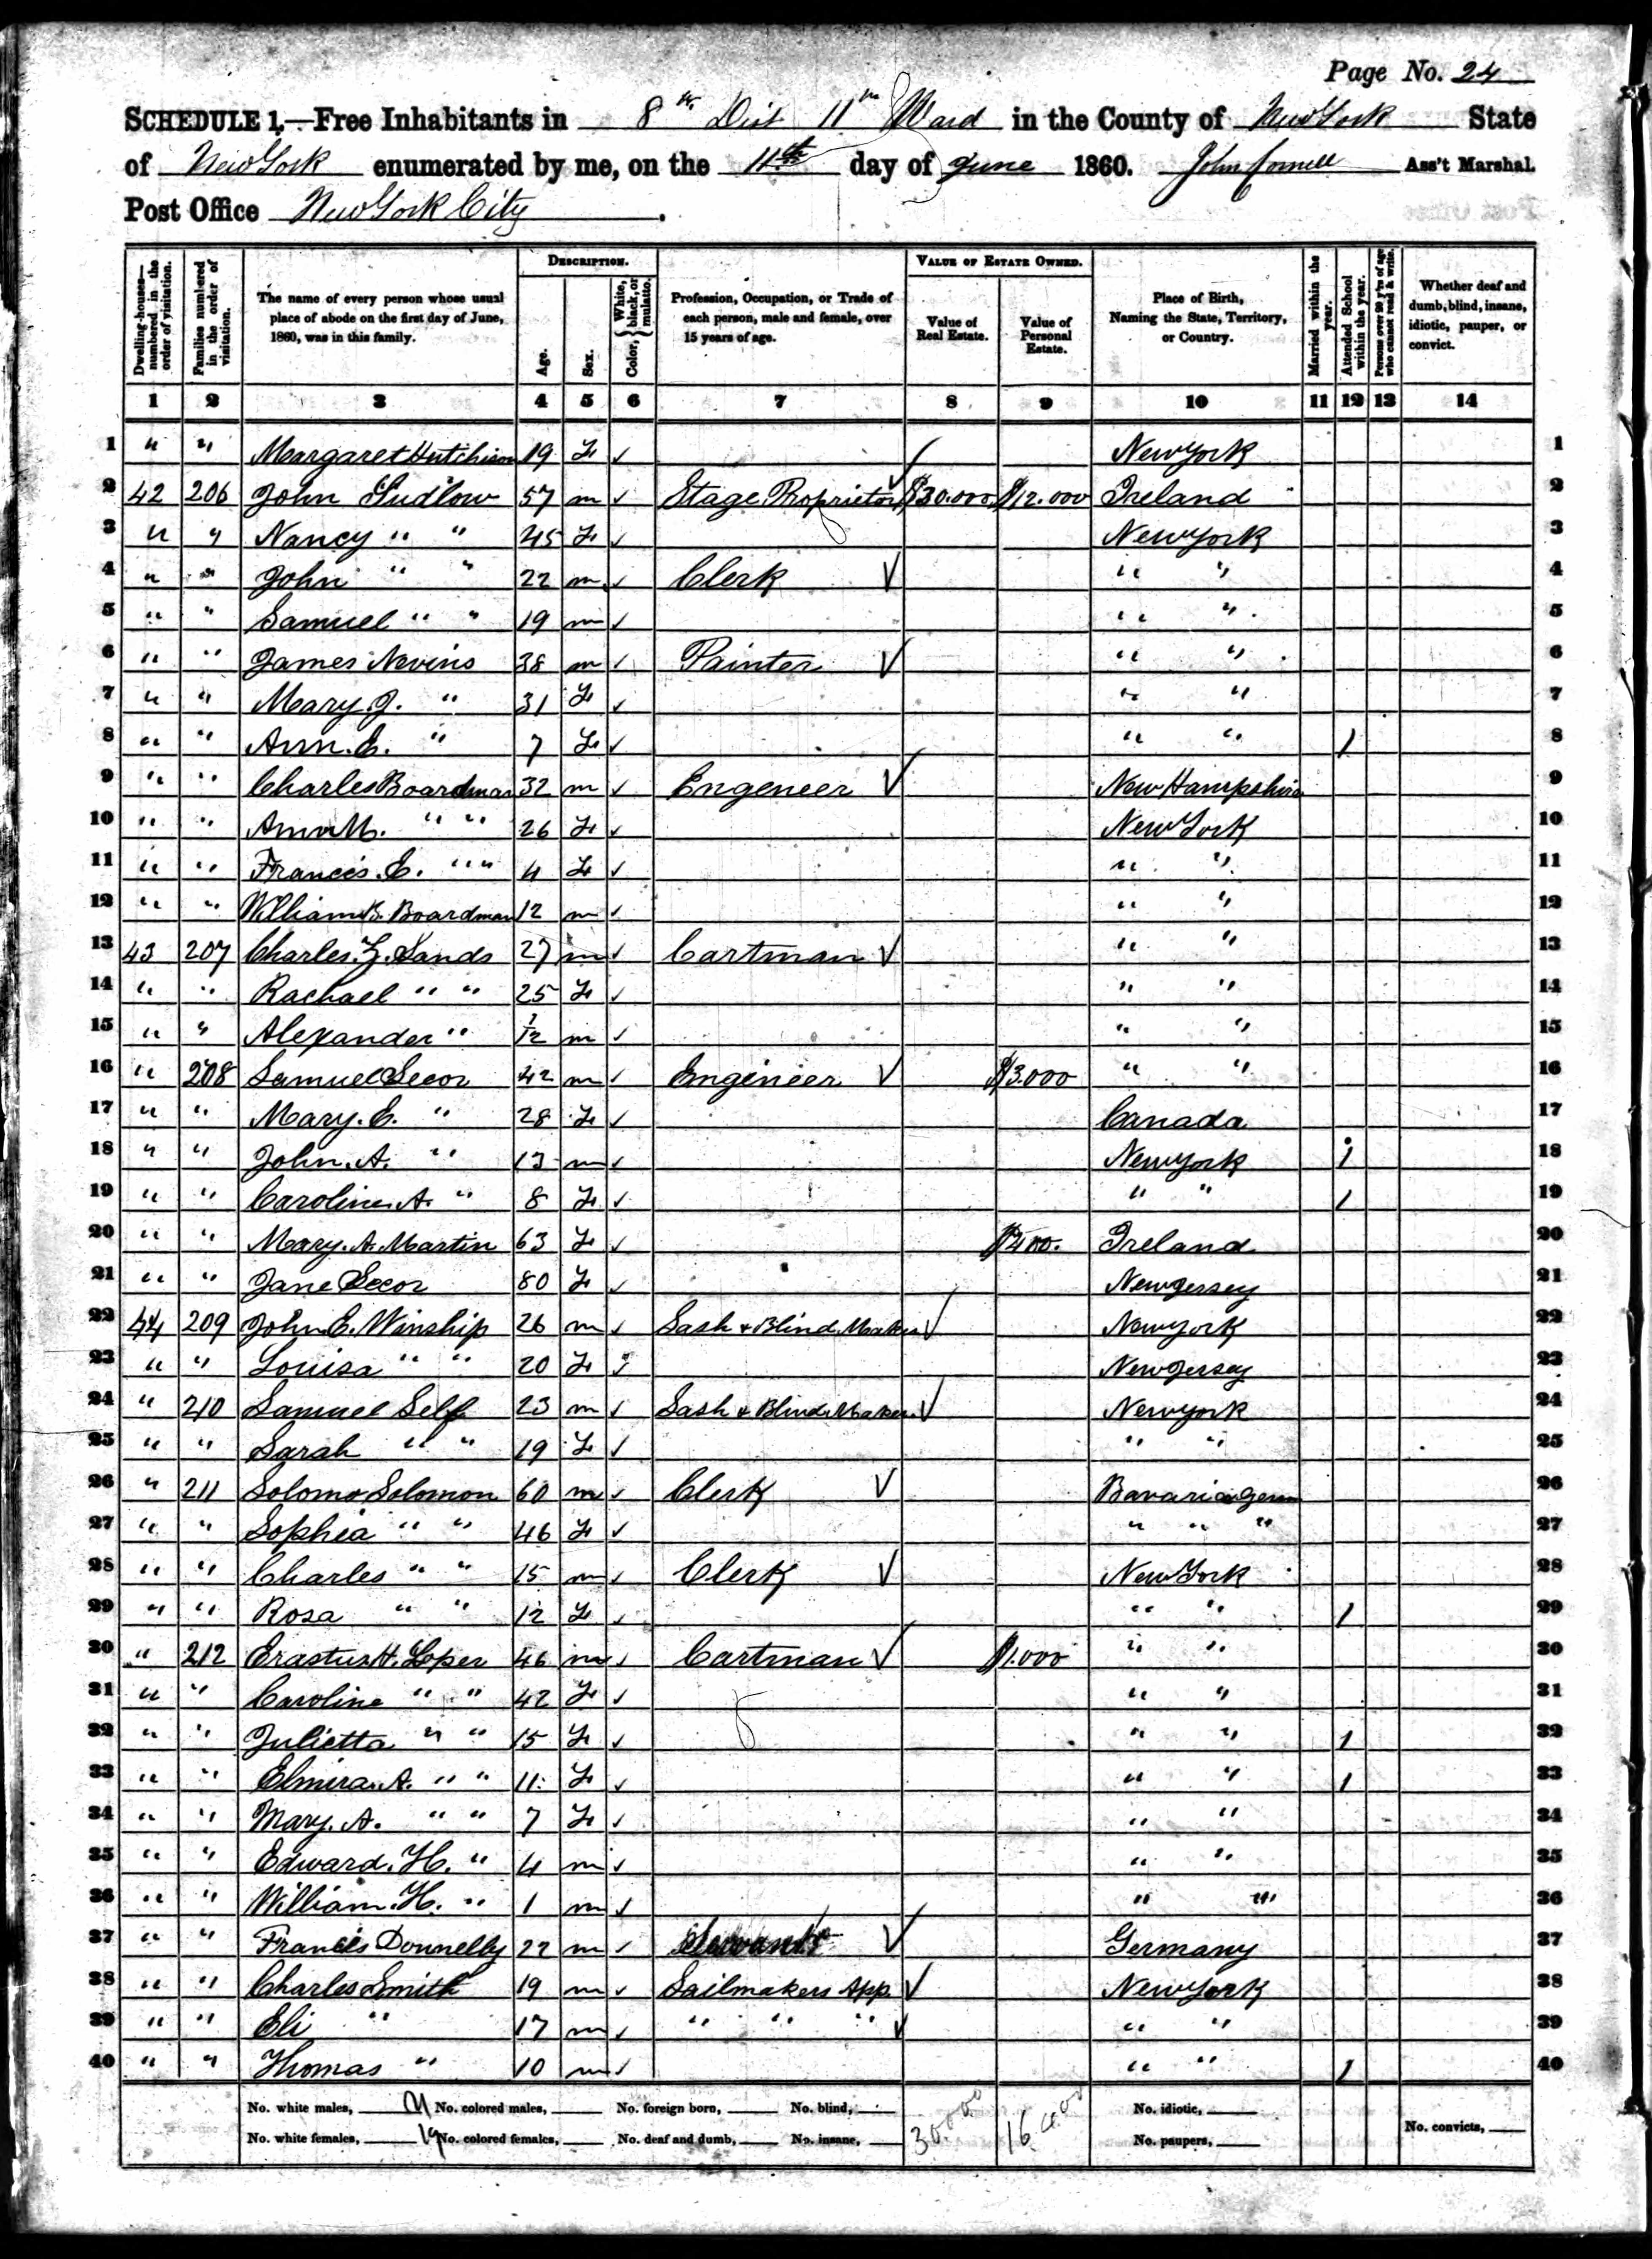 Page No. 24
SCHEDULE 1.—Free Inhabitants in 8th Dist 11th Ward in the County of New York State
of New York enumerated by me, on the 11th day of June 1860. John Cornell Ass't Marshal.
Post Office New York City.
DESCRIPTION. VALUE OF ESTATE OWNED.
Dwelling-houses—numbered in the order of visitation. Families numbered in the order of visitation. The name of every person whose usual place of abode on the first day of June, 1860, was in this family. Age. Sex. Color, { White, black, or mulatto. Profession, Occupation, or Trade of each person, male and female, over 15 years of age. Value of Real Estate. Value of Personal Estate. Place of Birth, Naming the State, Territory, or Country. Married within the year. Attended School within the year. Persons over 20 y'rs of age who cannot read & write. Whether deaf and dumb, blind, insane, idiotic, pauper, or convict.
1 2 3 4 5 6 7 8 9 10 11 12 13 14
1 " " Margaret Hutchison 19 F ✓ New York 1
2 42 206 John Ludlow 57 m ✓ Stage Proprietor $30.000 $12.000 Ireland 2
3 " " Nancy " " 45 F ✓ New York 3
4 " " John " " 22 m ✓ Clerk ✓ " " 4
5 " " Samuel " " 19 m ✓ " " 5
6 " " James Nevins 38 m ✓ Painter ✓ " " 6
7 " " Mary J. " 31 F ✓ " " 7
8 " " Ann. E. " 7 F ✓ " " 1 8
9 " " Charles Boardman 32 m ✓ Engeneer ✓ New Hampshire 9
10 " " Ann M. " " 26 F ✓ New York 10
11 " " Francis. E. " " 4 F ✓ " " 11
12 " " William B. Boardman 12 m ✓ " " 12
13 43 207 Charles. Z. Sands 27 m ✓ Cartman ✓ " " 13
14 " " Rachael " " 25 F ✓ " " 14
15 " " Alexander " 1/12 m ✓ " " 15
16 " 208 Samuel Secor 42 m ✓ Engineer ✓ $3.000 " " 16
17 " " Mary. E. " 28 F ✓ Canada 17
18 " " John. A. " 13 m ✓ New York 1 18
19 " " Caroline. A. " 8 F ✓ " " 1 19
20 " " Mary. A. Martin 63 F ✓ $400. Ireland 20
21 " " Jane Secor 80 F ✓ New Jersey 21
22 44 209 John E. Winship 26 m ✓ Sash & Blind Maker ✓ New York 22
23 " " Louisa " " 20 F ✓ New Jersey 23
24 " 210 Samuel Self 23 m ✓ Sash & Blind Maker ✓ New York 24
25 " " Sarah " " 19 F ✓ " " 25
26 " 211 Solomo Solomon 60 m ✓ Clerk ✓ Bavaria Germ 26
27 " " Sophia " " 46 F ✓ " " " 27
28 " " Charles " " 15 m ✓ Clerk ✓ New York 28
29 " " Rosa " " 12 F ✓ " " 1 29
30 " 212 Erastus H. Loper 46 m ✓ Cartman ✓ $1.000 " " 30
31 " " Caroline " " 42 F ✓ " " 31
32 " " Julietta " " 15 F ✓ " " 1 32
33 " " Elmira. A. " " 11 F ✓ " " 1 33
34 " " Mary. A. " " 7 F ✓ " " 34
35 " " Edward. H. " 4 m ✓ " " 35
36 " " William. H. " 1 m ✓ " " 36
37 " " Francis Donnelly 22 m ✓ Servant ✓ Germany 37
38 " " Charles Smith 19 m ✓ Sailmakers App ✓ New York 38
39 " " Eli " 17 m ✓ " " " ✓ " " 39
40 " " Thomas " 10 m ✓ " " 1 40
No. white males, 21 No. colored males, No. foreign born, No. blind, 30.000 16.400 No. idiotic,
No. white females, 19 No. colored females, No. deaf and dumb, No. insane, No. paupers, No. convicts,